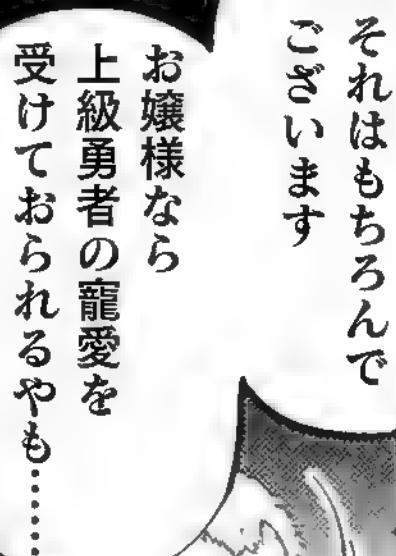 それはもちろんで
ございます
お嬢様なら
上級勇者の寵愛を
受けておられるやも……